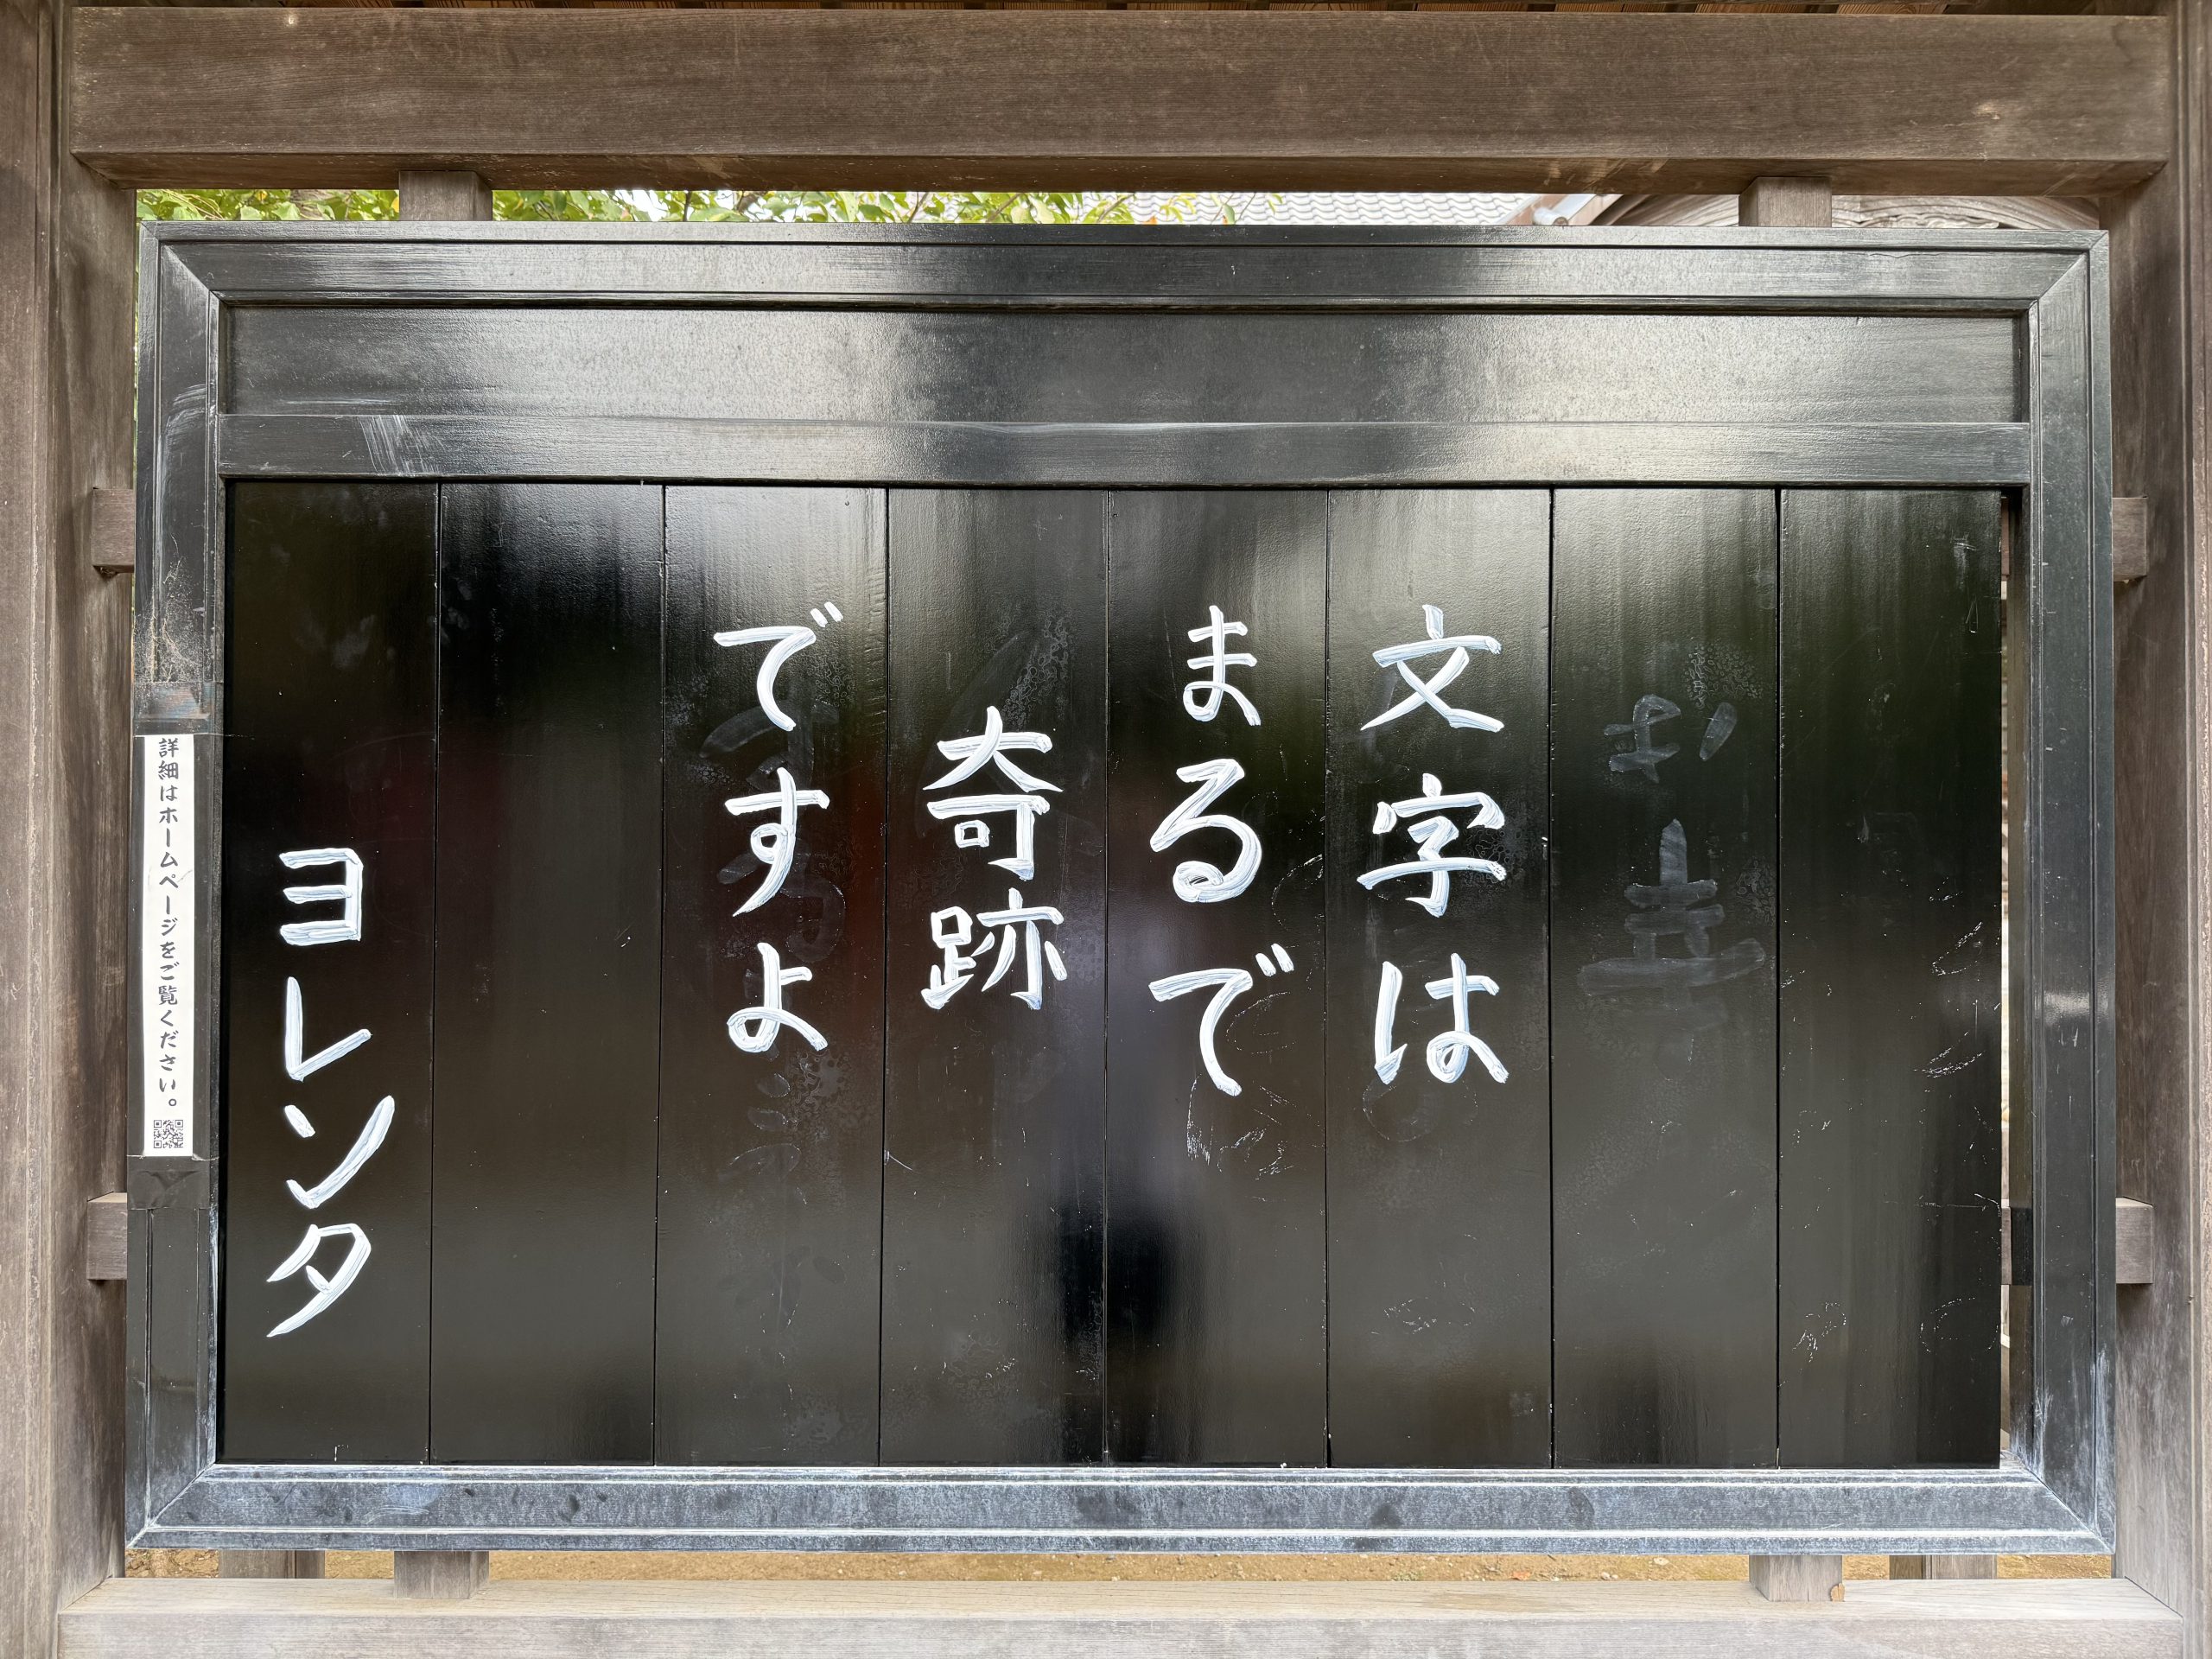 文字は
まるで
奇跡
ですよ
ヨレンタ
詳細はホームページをご覧ください。